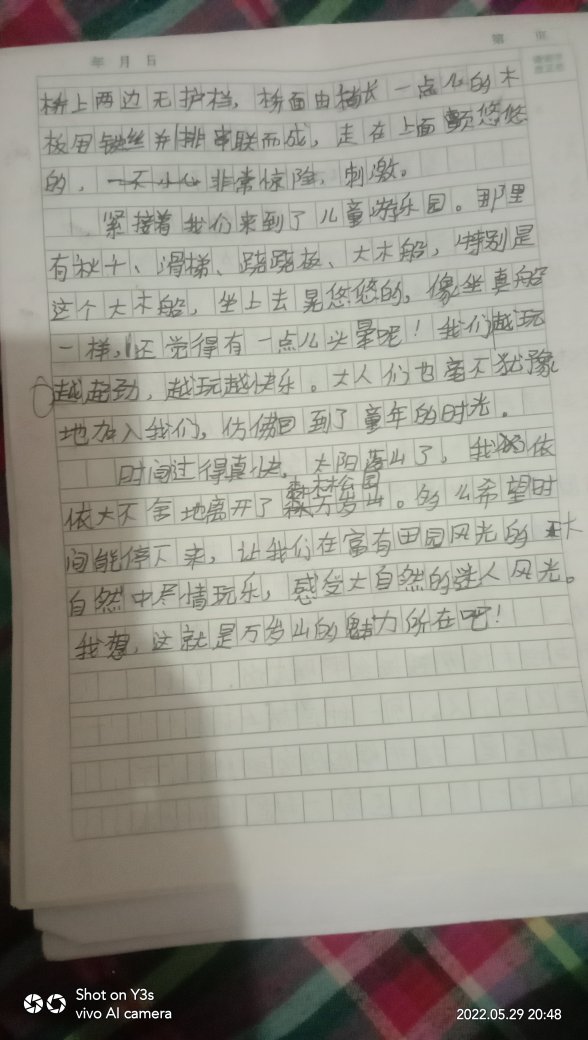 年 月 日 第 页
桥上两边无护档，桥面由稍长一点儿的木
板用铁丝并排串联而成，走在上面颤悠悠
的，一不小心非常惊险，刺激。
紧接着我们来到了儿童游乐园。那里
有秋千、滑梯、跷跷板、大木船，特别是
这个大木船，坐上去晃悠悠的，像坐真船
一样，还觉得有一点儿头晕呢！我们越玩
越起劲，越玩越快乐。大人们也毫不犹豫
地加入我们，仿佛回到了童年的时光。
时间过得真快，太阳落山了，我们依
森林公园
依大不舍地离开了万岁山。多么希望时
间能停下来，让我们在富有田园风光的大
自然中尽情玩乐，感受大自然的迷人风光。
我想，这就是万岁山的魅力所在吧！
Shot on Y3s
vivo AI camera
2022.05.29 20:48